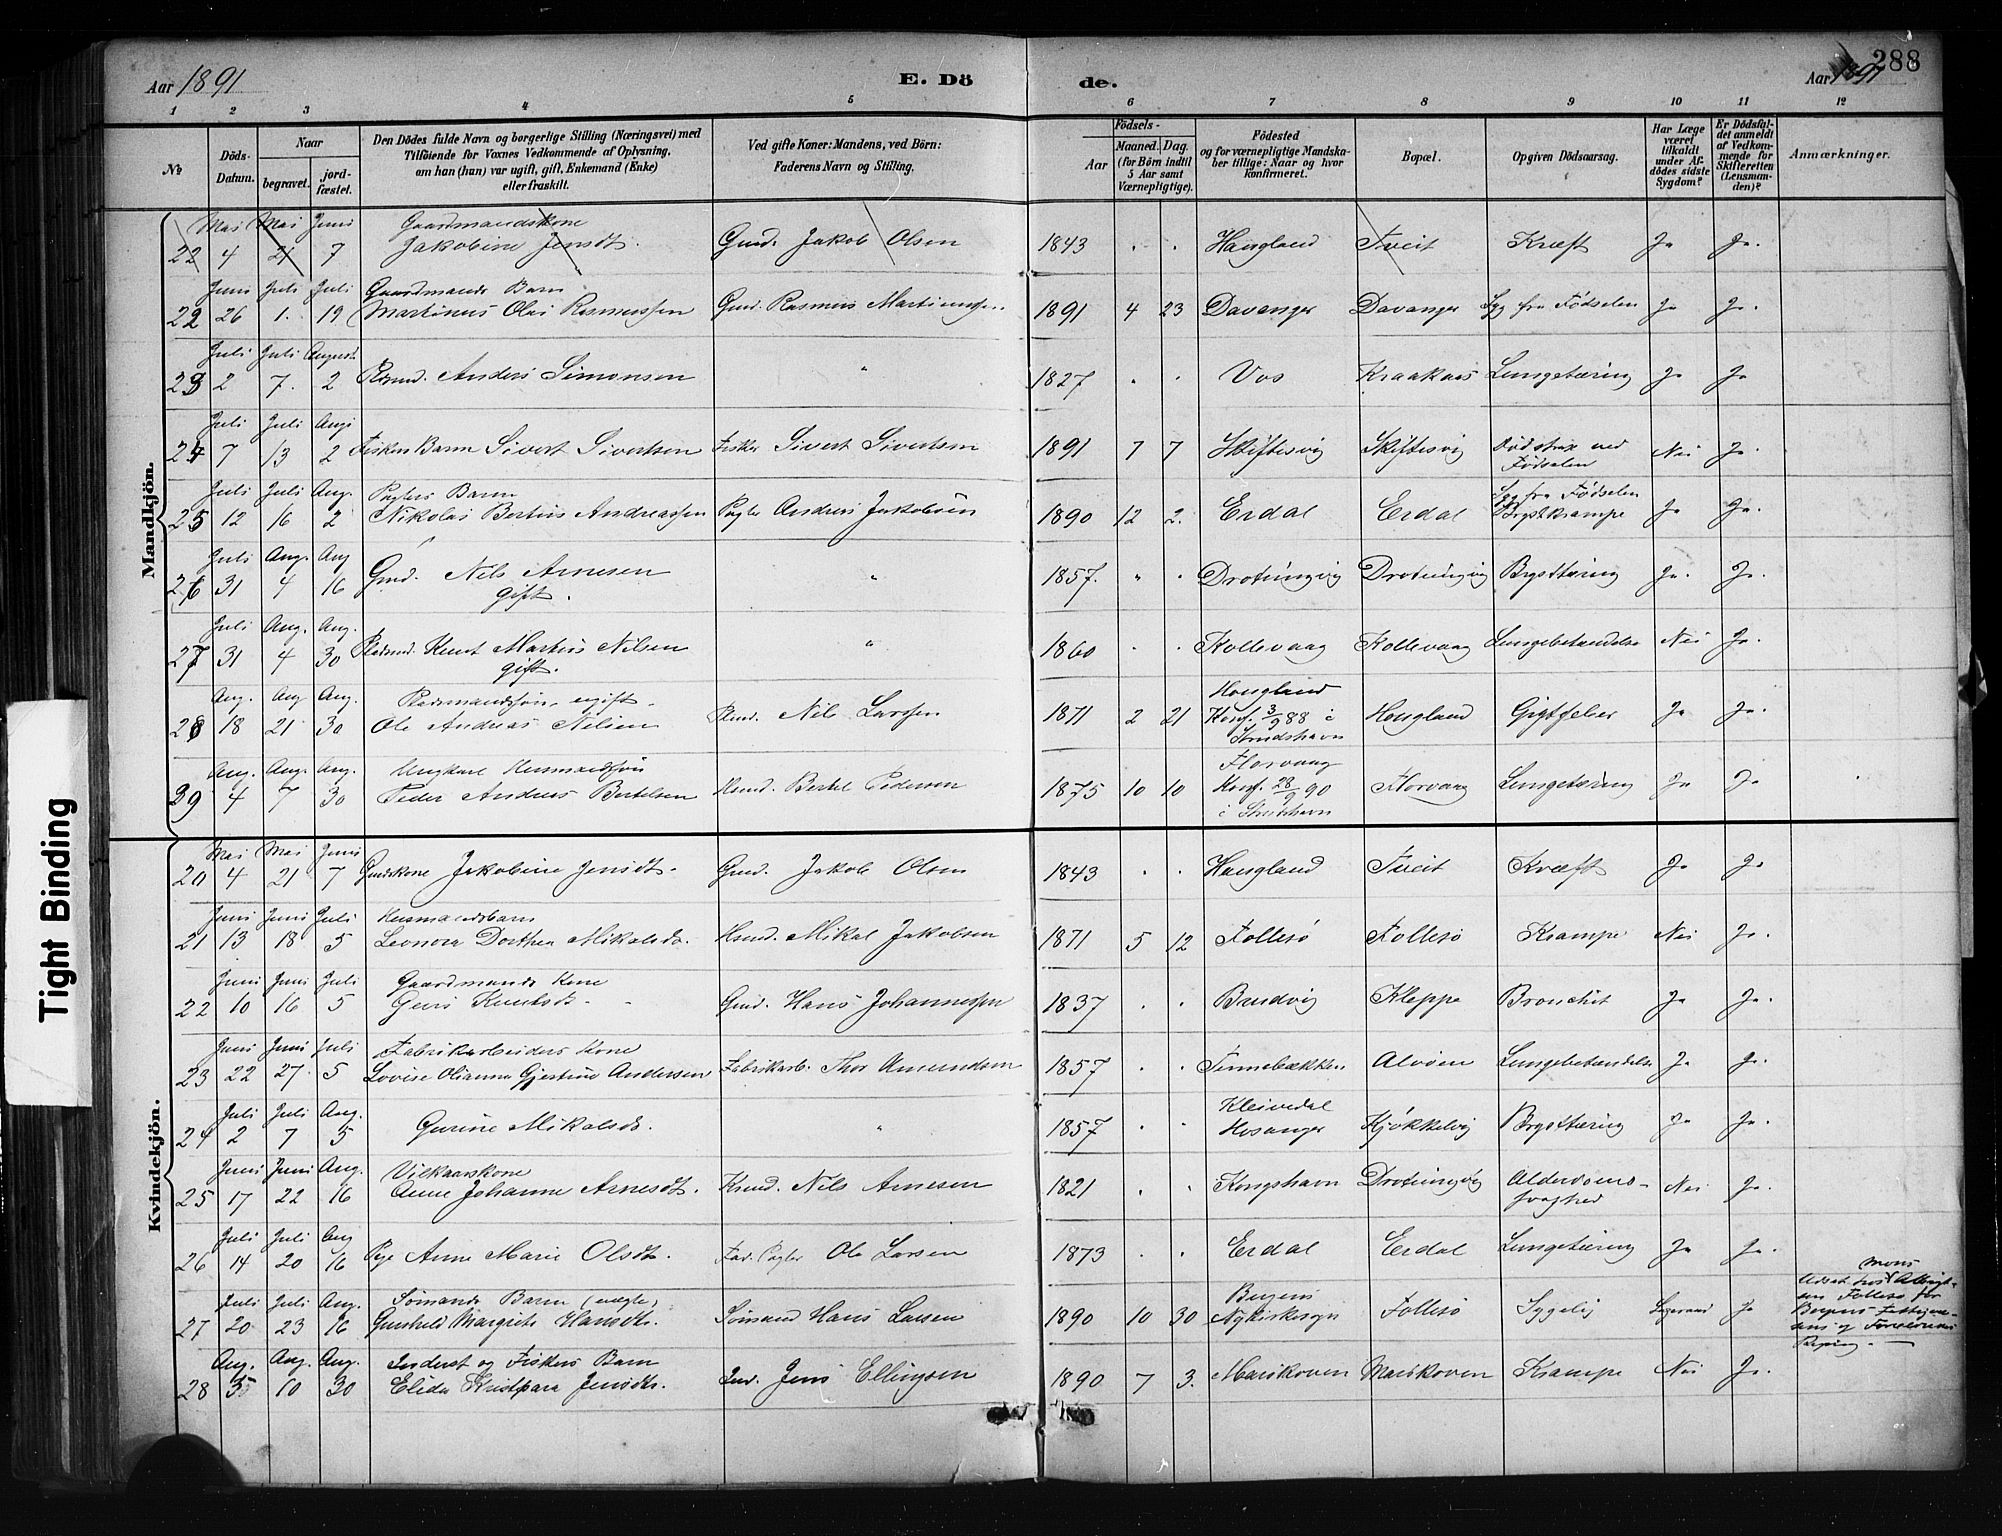 288
Aar 1891 E. Dö de. Aar 1891
1 2 3 4 5 6 7 8 9 10 11 12
№ Döds-Datum. Naar begravet. jordfæstet. Den Dödes fulde Navn og borgerlige Stilling (Næringsvei) med Tilföiende for Voxnes Vedkommende af Oplysning, om han (hun) var ugift, gift, Enkemand (Enke) eller fraskilt. Ved gifte Koner: Mandens, ved Börn: Faderens Navn og Stilling. Födsels- Aar Maaned. Dag. (for Börn indtil 5 Aar samt Værnepligtige). Födested og for værnepligtige Mandskaber tillige: Naar og hvor konfirmeret. Bopæl. Opgiven Dödsaarsag. Har Læge været tilkaldt under Afdödes sidste Sygdom? Er Dödsfaldet anmeldt af Vedkommende for Skifteretten (Lensmanden)? Anmærkninger.
Mandkjön.
22 Mai 4 Mai 21 Juni 7 Gaardmandskone Jakobine Jensdt. Gmd. Jakob Olsen 1843 Haugland Tveit Kræft Ja Ja.
22 Juni 26 Juli 1. Juli 19 Gaardmands Barn Martinus Olai Rasmussen Gmd. Rasmus Martinussen 1891 4 23 Davanger Davanger Syg fra Fødselen Ja Ja.
23 Juli 2 Juli 7. August 2 Anders Simonsen " 1827 Vos Kraakaas Lungetæring Ja Ja
24 Juli 7 Juli 13 Aug. 2 Fiskers Barn Sivert Sivertsen Fisker Sivert Sivertsen 1891 7 7 Skiftesvig Skiftesvig ved Fødselen Nei Ja.
25 Juli 12 Juli 16 Aug. 2 Barn Nikolai Bertius Andreassen Andreas Jakobsen 1890 12 2. Erdal Erdal Syg fra Fødselen Brystkrampe Ja Ja.
26 Juli 31 Aug. 4 Aug 16 Gmd. Nils Arnesen gift. " 1857. " Drotningvig Drotningvig Brysttæring Ja. Ja.
27 Juli 31 Aug. 4 Aug. 30 Pladsmd. Knut Martin Nilsen gift. " 1860 Kollevaag Kollevaag Lungebetændelse Nei Ja.
28 Aug. 18 Aug 21 Aug. 30 Pladsmandssøn, ugift. Ole Andreas Nilsen Plmd. Nils Larsen 1871 2 21 Haugland Konf. 3/9 88 i Strudshavn Haugland Gigtfeber Ja Ja.
29 Aug. 4 Aug. 7 Aug. 30 Ungkarl Husmandssøn Peder Andreas Bertelsen Hsmd. Bertel Pedersen 1875 10 10 Florvaag Konf. 28/9 90 i Strudshavn Florvaag Lungetæring Ja Ja
Kvindekjön.
20 Mai 4 Mai 21 Juni 7 Gmdskone Jakobine Jensdt. Gmd. Jakob Olsen 1843 Haugland Tveit Kræft Ja Ja
21 Juni 13 Juni 18 Juli 5 Husmandsbarn Leonora Dorthea Mikalsdt. Hsmd. Mikal Jakobsen 1871 5 12 Follesø Follesø Krampe Nei Ja.
22 Juni 10 Juni 16 Juli 5 Gaardmands Kone Guri Knutsdt. Gmd. Hans Johannessen 1837 Bredvig Kleppe Bronchit Ja Ja.
23 Juni 22 Juni 27. Juli 5 Fabrikarbeiders Kone Lovise Olianna Gjertine Andersen Fabrikarb. Thor Amundsen 1857 Tennebækken Alvøen Lungebetændelse Ja Ja.
24 Juli 2 Juli 7 Aug. 5 Gurine Mikalsdt. " 1857 Kleivedal Hosanger Kjøkkelvig Brysttæring Ja Ja.
25 Juni 17 Juni 22 Aug. 16 Vilkaarskone Anne Johanne Arnesdt. Nils Arnesen 1821 Kongshavn Drotningvig Alderdoms-svaghed Nei Ja.
26 Juli 14 Juli 20 Aug 16 Pige Anne Marie Olsdt. Fad. Ole Larsen 1873 Erdal Erdal Lungetæring Ja Ja.
27 Juli 20 Juli 23 Aug. 16 Sømands Barn (uægte) Gunhild Margrete Hansdt. Sømand Hans Larsen 1890 10 30 Bergens Nykirkesogn Follesø Sygelig Ja Mons Follesø for Bergens
28 Aug. 5 Aug. 10 Aug. 30 Inderst og Fiskers Barn Elida Kristpara Jensdt. Ind. Jens Ellingsen 1890 7 3. Marikoven Marikoven Krampe Nei Ja.
Tight Binding